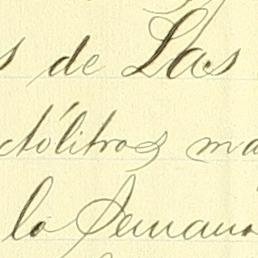 s de Las
ctólitros ma
la Semana